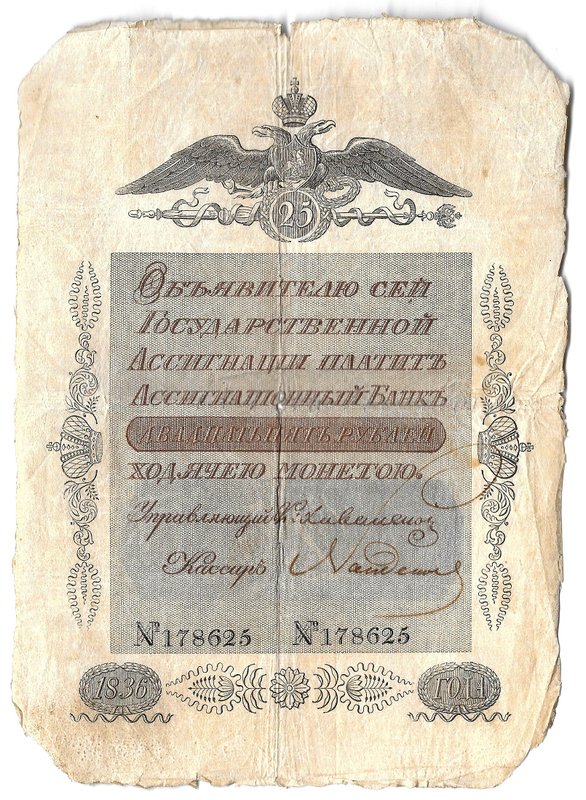 25
Объявителю сей
Государственной
Ассигнаціи платитъ
Ассигнаціонный Банкъ
двадцать пять рублей
ходячею монетою.
Управляющій
Кассиръ
№178625 №178625
1836 ГОДА